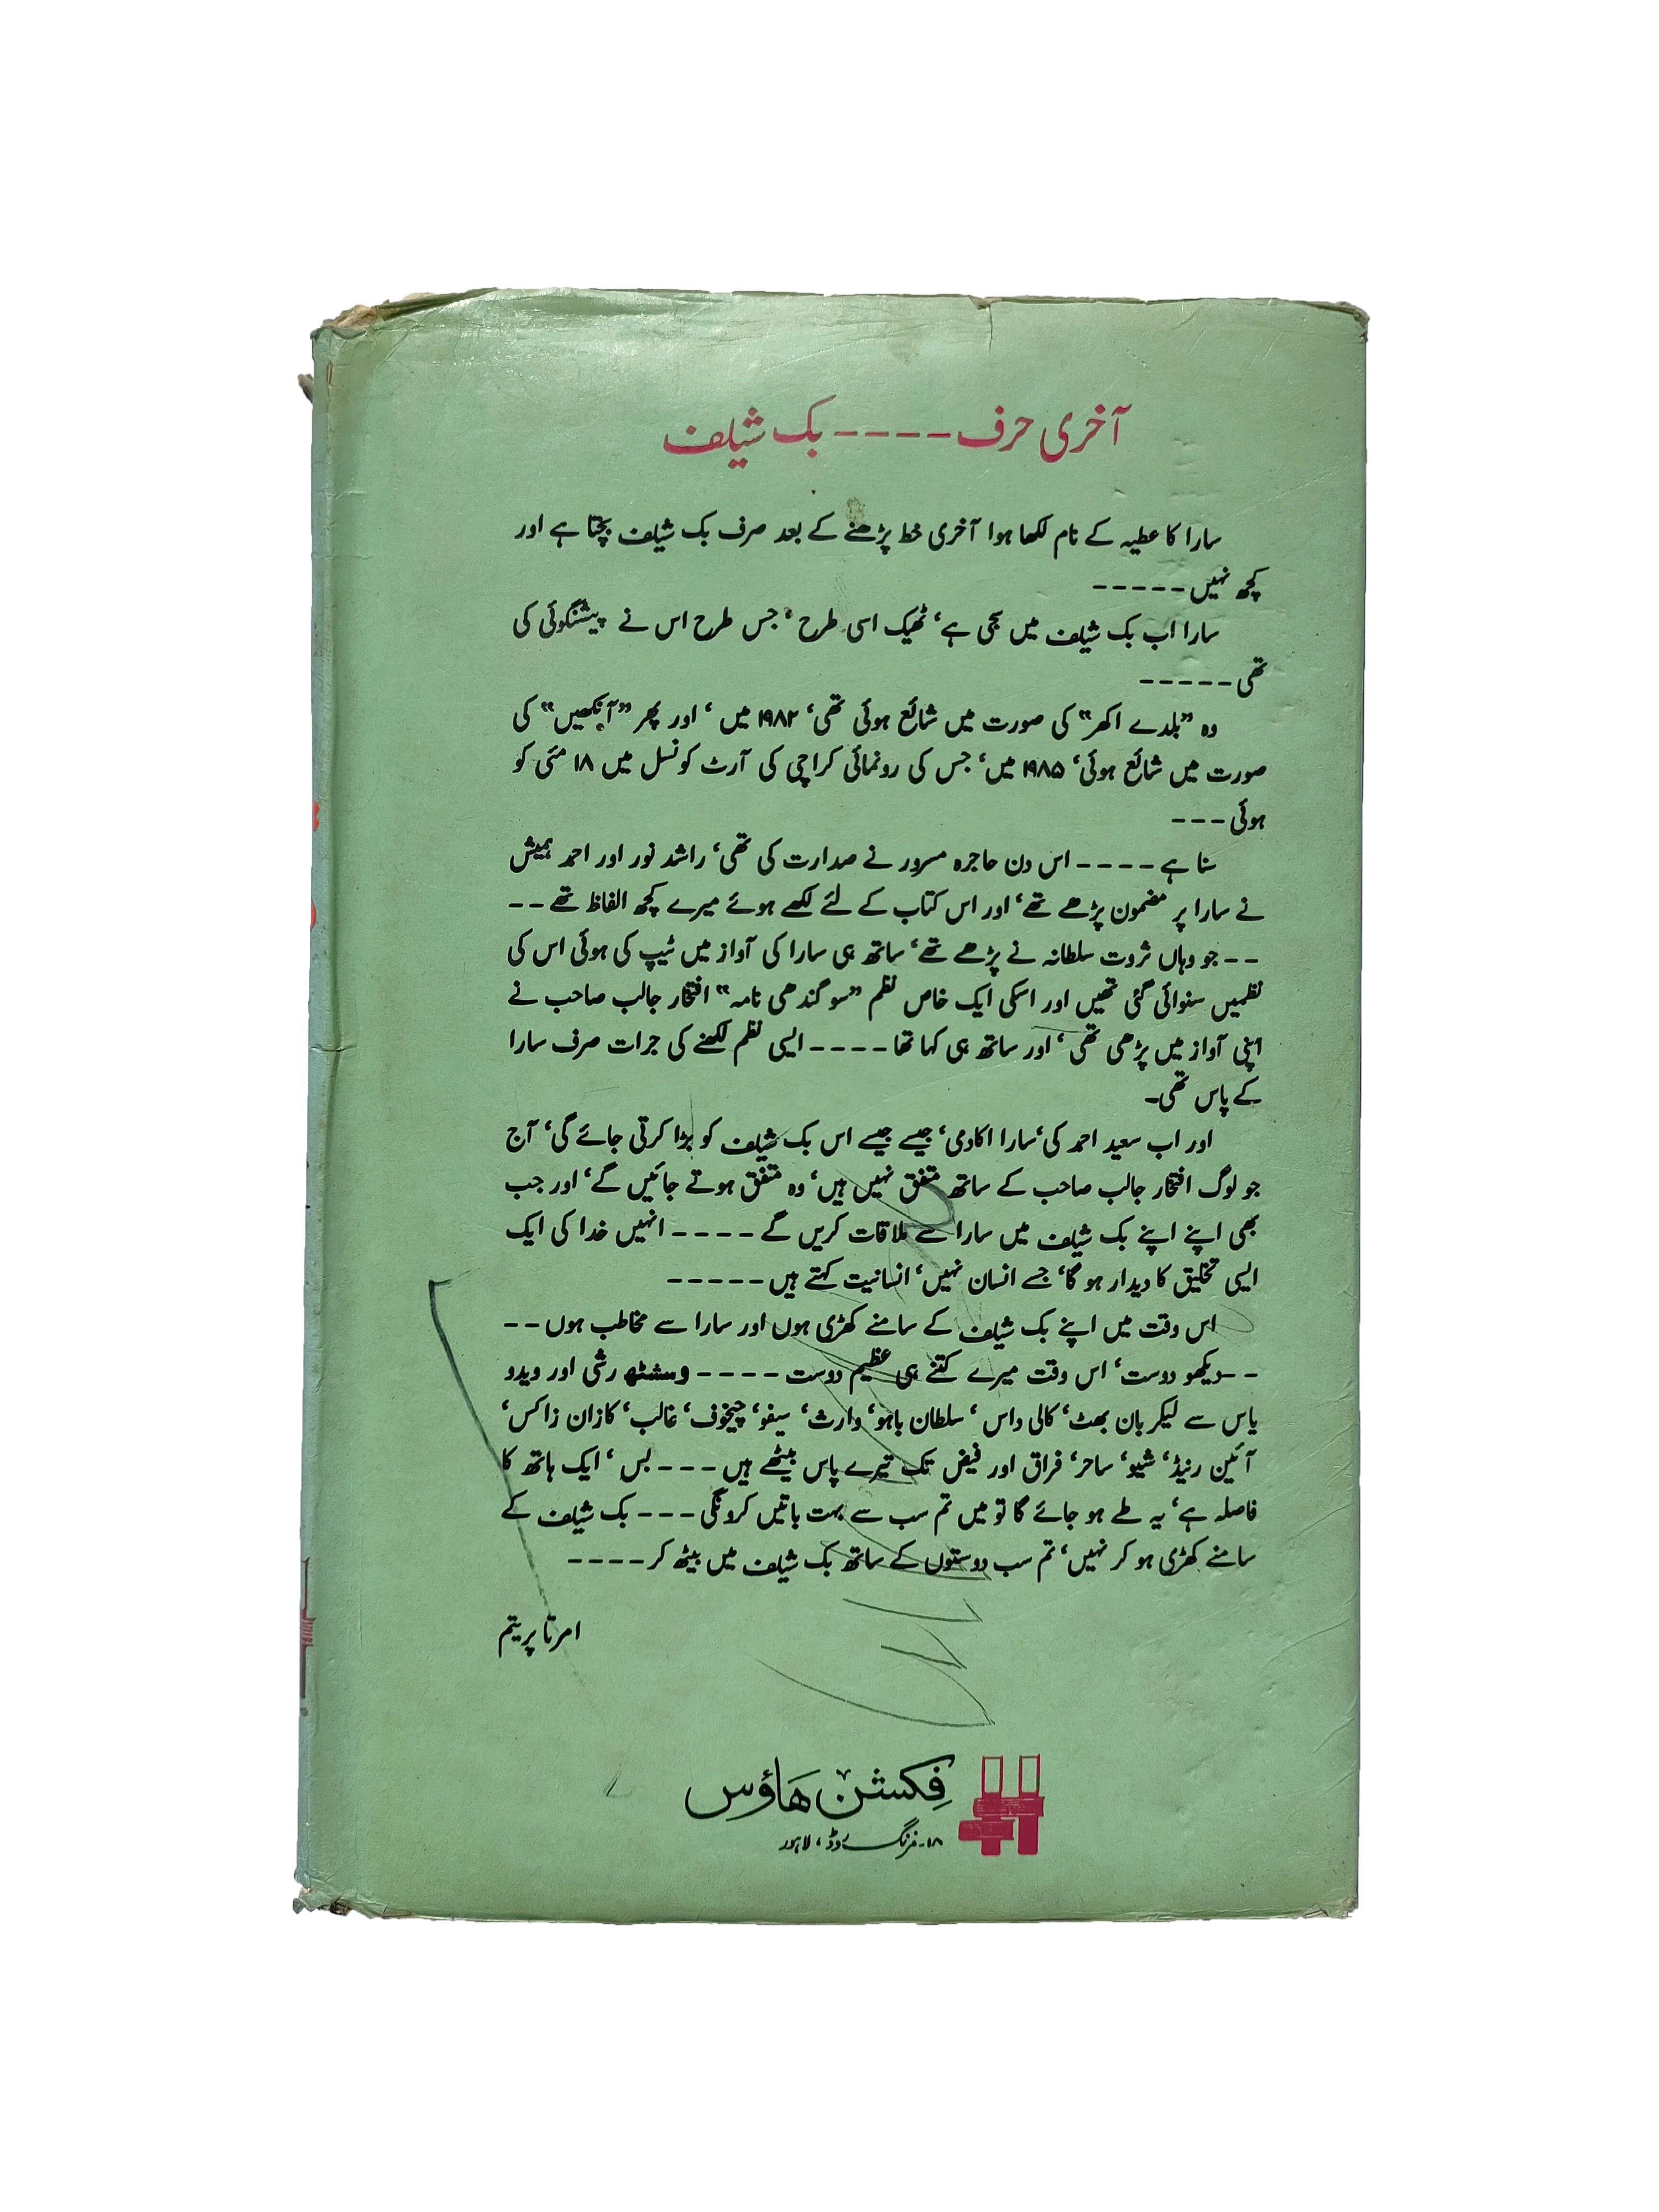 آخری حرف ---- بک شیلف
سارا کا عطیہ کے نام لکھا ہوا آخری خط پڑھنے کے بعد صرف بک شیلف بچتا ہے اور
کچھ نہیں -----
سارا اب بک شیلف میں سجی ہے‘ ٹھیک اسی طرح ‘ جس طرح اس نے پیشنگوئی کی
تھی -----
وہ ”بلدے اکھر“ کی صورت میں شائع ہوئی تھی‘ ۱۹۸۲ میں ‘ اور پھر ”آنکھیں“ کی
صورت میں شائع ہوئی‘ ۱۹۸۵ میں‘ جس کی رونمائی کراچی کی آرٹ کونسل میں ۱۸ مئی کو
ہوئی ---
سنا ہے ---- اس دن حاجرہ مسرور نے صدارت کی تھی‘ راشد نور اور احمد ہمیش
نے سارا پر مضمون پڑھے تھے‘ اور اس کتاب کے لئے لکھے ہوئے میرے کچھ الفاظ تھے --
-- جو وہاں ثروت سلطانہ نے پڑھے تھے‘ ساتھ ہی سارا کی آواز میں ٹیپ کی ہوئی اس کی
نظمیں سنوائی گئی تھیں اور اسکی ایک خاص نظم ”سو گندھی نامہ“ افتخار جالب صاحب نے
اپنی آواز میں پڑھی تھی‘ اور ساتھ ہی کہا تھا ---- ایسی نظم لکھنے کی جرات صرف سارا
کے پاس تھی۔
اور اب سعید احمد کی ‘سارا اکادمی‘ جیسے جیسے اس بک شیلف کو بڑا کرتی جائے گی‘ آج
جو لوگ افتخار جالب صاحب کے ساتھ متفق نہیں ہیں‘ وہ متفق ہوتے جائیں گے‘ اور جب
بھی اپنے اپنے بک شیلف میں سارا سے ملاقات کریں گے ---- انہیں خدا کی ایک
ایسی تخلیق کا دیدار ہو گا‘ جسے انسان نہیں‘ انسانیت کہتے ہیں -----
اس وقت میں اپنے بک شیلف کے سامنے کھڑی ہوں اور سارا سے مخاطب ہوں --
-- دیکھو دوست‘ اس وقت میرے کتنے ہی عظیم دوست ---- وسشٹھ رشی اور ویدو
یاس سے لیکر بان بھٹ‘ کالی داس ‘ سلطان باہو‘ وارث‘ سیفو‘ چیخوف‘ غالب‘ کازان زاکس‘
آئین رینڈ‘ شیو‘ ساحر‘ فراق اور فیض تک تیرے پاس بیٹھے ہیں --- بس ‘ ایک ہاتھ کا
فاصلہ ہے‘ یہ طے ہو جائے گا تو میں تم سب سے بہت باتیں کرونگی --- بک شیلف کے
سامنے کھڑی ہو کر نہیں‘ تم سب دوستوں کے ساتھ بک شیلف میں بیٹھ کر ----
امرتا پریتم
فکشن ہاؤس
۱۸-مزنگ روڈ، لاہور